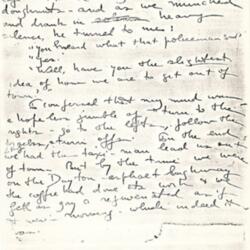 doughnuts - and as we munched
and drank in heavy
silence, he turned to me:
"you heard what that policeman said?"
"yes."
"Well, have you the slightest
idea of how we are to get out of
town."
I confessed that my mind was
a hopeless jumble of turn to the
rights - go to the left - follow the
turn off. In the end
we had the taxi man lead us out
of town. But by the time we were
on the Dayton asphalt highway
the coffee had done its work &
felt as gay & refreshed as if
morning - which indeed it
was.